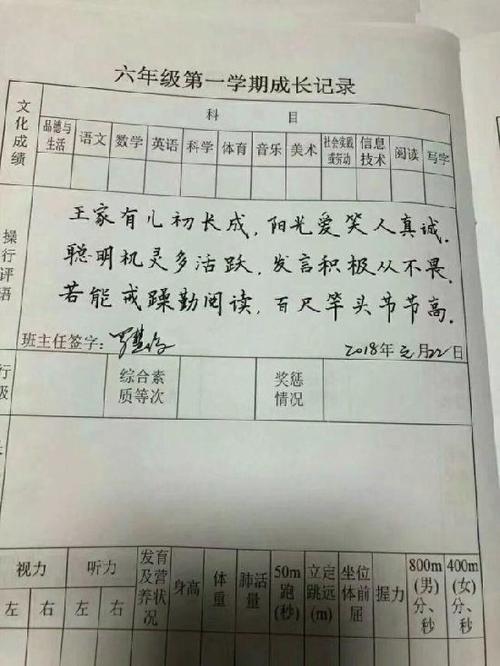 六年级第一学期成长记录
文化成绩
科 目
品德与生活 语文 数学 英语 科学 体育 音乐 美术 社会实践或劳动 信息技术 阅读 写字
操行评语
王家有儿初长成，阳光爱笑人真诚。
聪明机灵多活跃，发言积极从不畏。
若能戒躁勤阅读，百尺竿头节节高。
班主任签字：
2018年元月22日
综合素质等次
奖惩情况
视力 听力 发育及营养状况 身高 体重 肺活量 50m跑(秒) 立定跳远(m) 坐位体前屈 握力 800m(男)分、秒 400m(女)分、秒
左 右 左 右